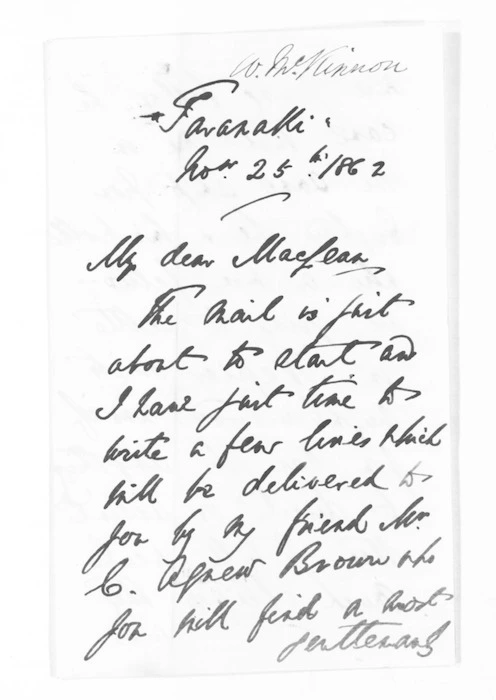 W. McKinnon
Taranaki
Novr. 25th. 1862
My dear MacLean
The mail is just
about to start and
I have just time to
write a few lines which
will be delivered to
you by my friend Mr
C. Agnew Brown who
you will find a most
gentlemanly